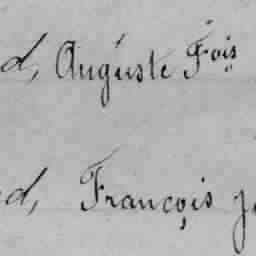 d, Auguste Fois
d, François